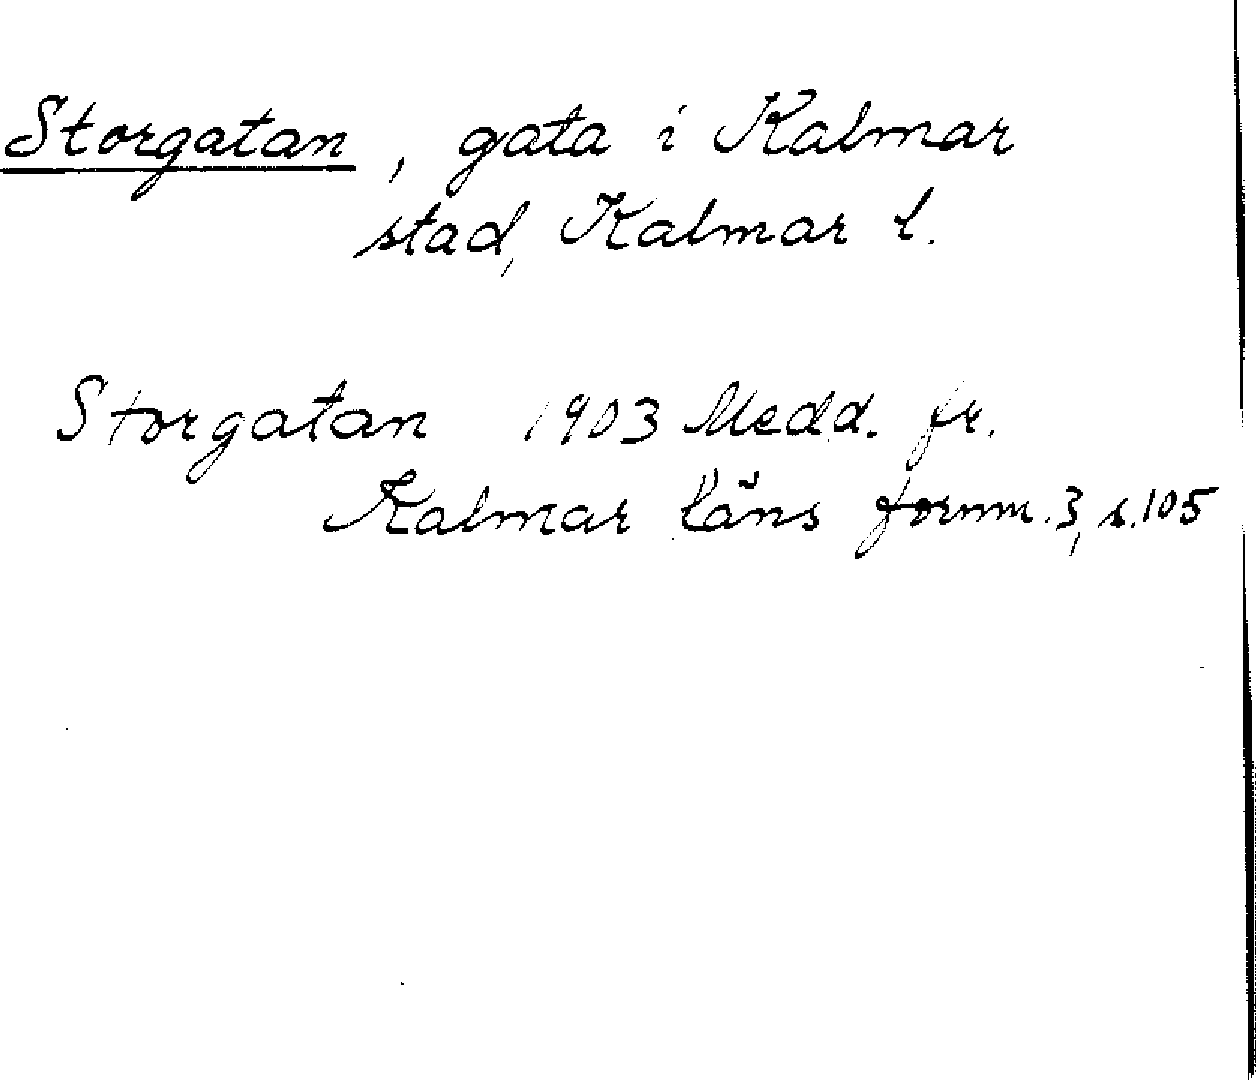 Storgatan, gata i Kalmar
stad, Kalmar l.
Storgatan 1903 Medd. fr.
Kalmar läns fornm. 3, s. 105